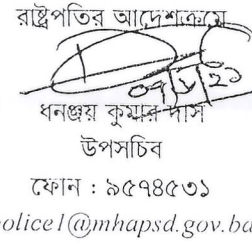 রাষ্ট্রপতির আদেশক্রমে
ধনঞ্জয় কুমার দাস
উপসচিব
ফোন : ৯৫৭৪৫৩১
olice1@mhapsd.gov.bd